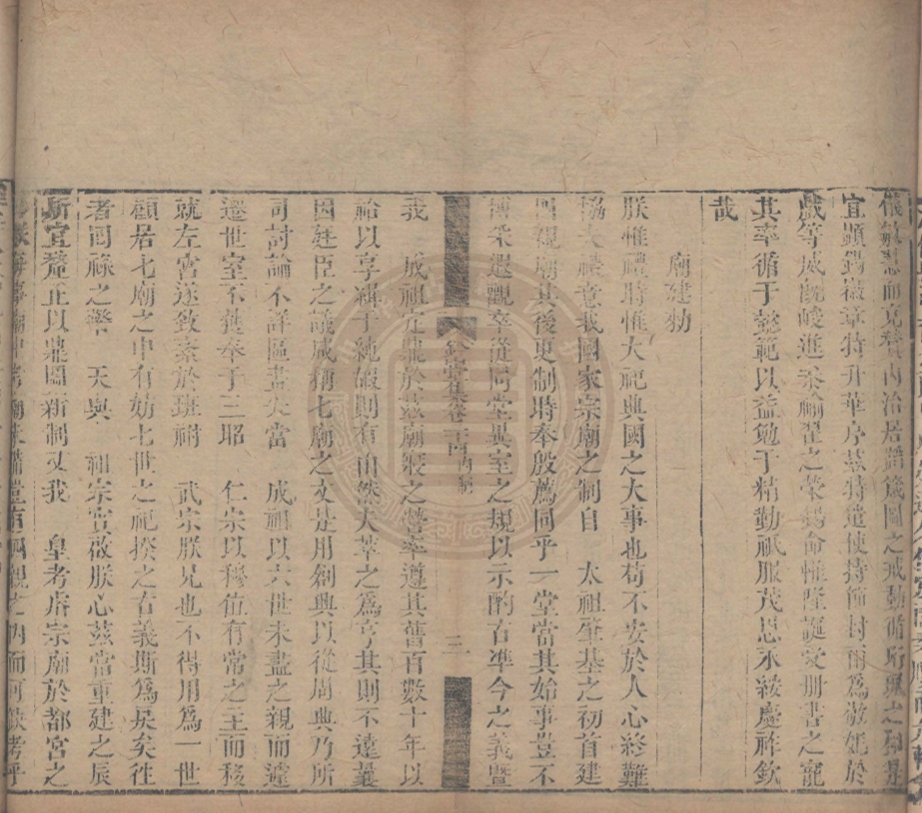 儀敏慧而克
宜顯錫徽章特升華序茲特遣使持節封爾為敬妃於
戲等威既峻進柔褕翟之榮錫命惟隆誕受冊書之寵
其率循于懿範以益勉于精勤祗服茂恩永綏慶祥欽
哉
廟建勑
朕惟禮時惟大祀典國之大事也苟不安於人心終難
協大禮意我國家宗廟之制自 太祖肇基之初首建
四親廟其後更制時奉殷薦同乎一堂當其始事豈不
博采遐觀卒從同堂異室之規以示酌古準今之義暨
鈐山堂集卷二十四 內制 三
我 成祖定鼎於茲廟寢之營率遵其舊百數十年以
祫以享緝于純嘏則有由然大萃之為亨其則不遠曩
因廷臣之議咸稱七廟之文是用創興以從周典乃所
司討論不詳區畫失當 成祖以六世未盡之親而遽
遷世室不獲奉于三昭 仁宗以穆位有常之主而移
就左宮遂致紊於班祔 武宗朕兄也不得用為一世
顧居七廟之中有妨七世之祀揆之古義斯為戾矣往
者回祿之警 天與 祖宗寔啟朕心茲當重建之辰
所宜釐正以鼎圖新制又我 皇考睿宗廟於都宮之